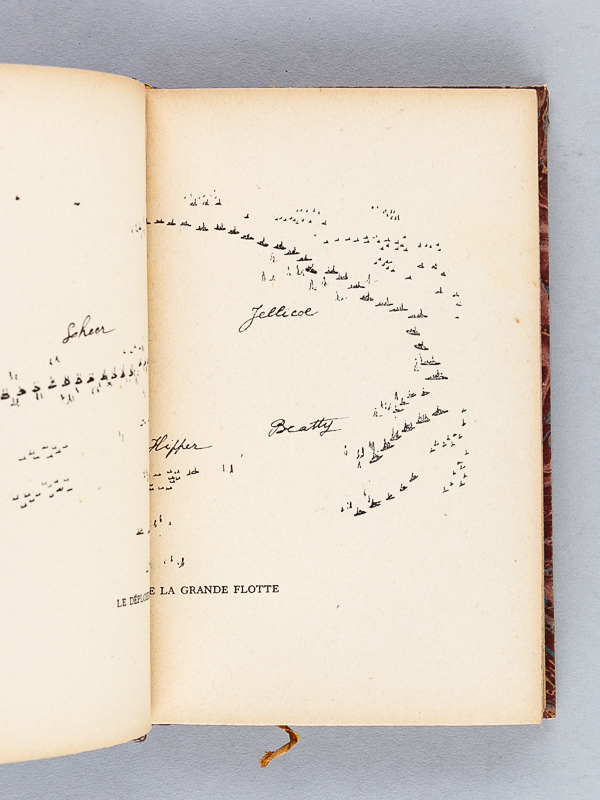 Jellicoe
Scheer
Beatty
Hipper
LE DÉPLO E LA GRANDE FLOTTE